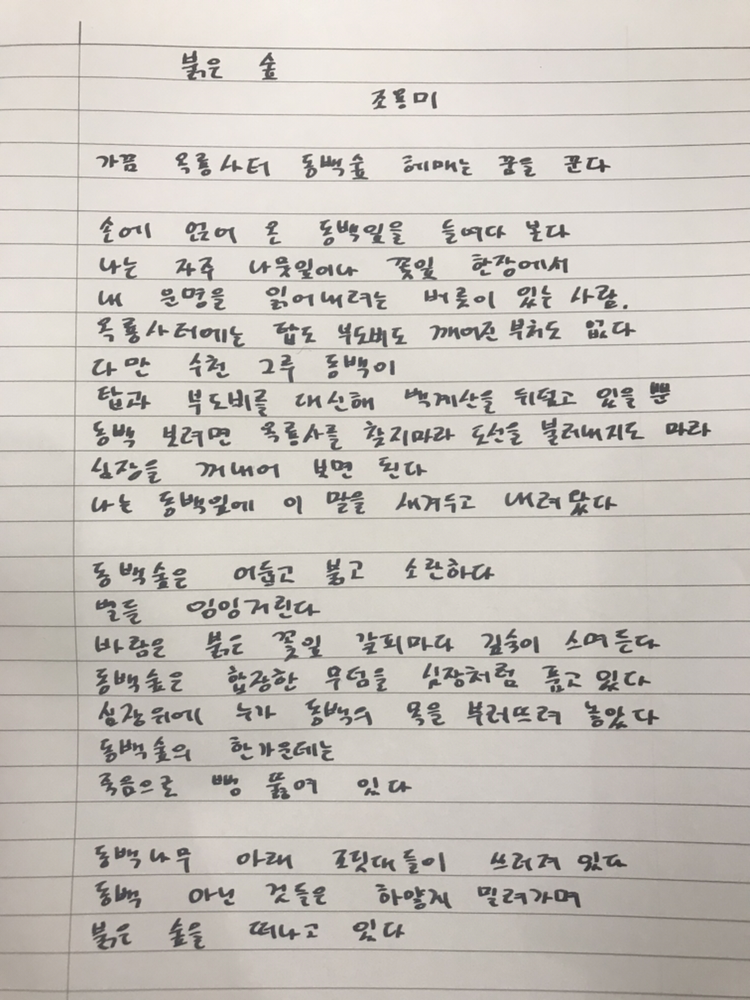 붉은 숲
조용미
가끔 옥룡사터 동백숲 헤매는 꿈을 꾼다
손에 얹어 온 동백잎을 들여다 본다
나는 자주 나뭇잎이나 꽃잎 한장에서
내 운명을 읽어내려는 버릇이 있는 사람.
옥룡사터에는 탑도 부도비도 깨어진 부처도 없다
다만 수천 그루 동백이
탑과 부도비를 대신해 백계산을 뒤덮고 있을 뿐
동백 보려면 옥룡사를 찾지마라 도선을 불러내지도 마라
심장을 꺼내어 보면 된다
나는 동백잎에 이 말을 새겨두고 내려왔다
동백숲은 어둡고 붉고 소란하다
벌들 잉잉거린다
바람은 붉은 꽃잎 갈피마다 깊숙이 스며든다
동백숲은 합장한 무덤을 심장처럼 품고 있다
심장위에 누가 동백의 목을 부러뜨려 놓았다
동백숲의 한가운데는
죽음으로 뻥 뚫여 있다
동백나무 아래 조릿대들이 쓰러져 있다
동백 아닌 것들은 하얗게 밀려가며
붉은 숲을 떠나고 있다